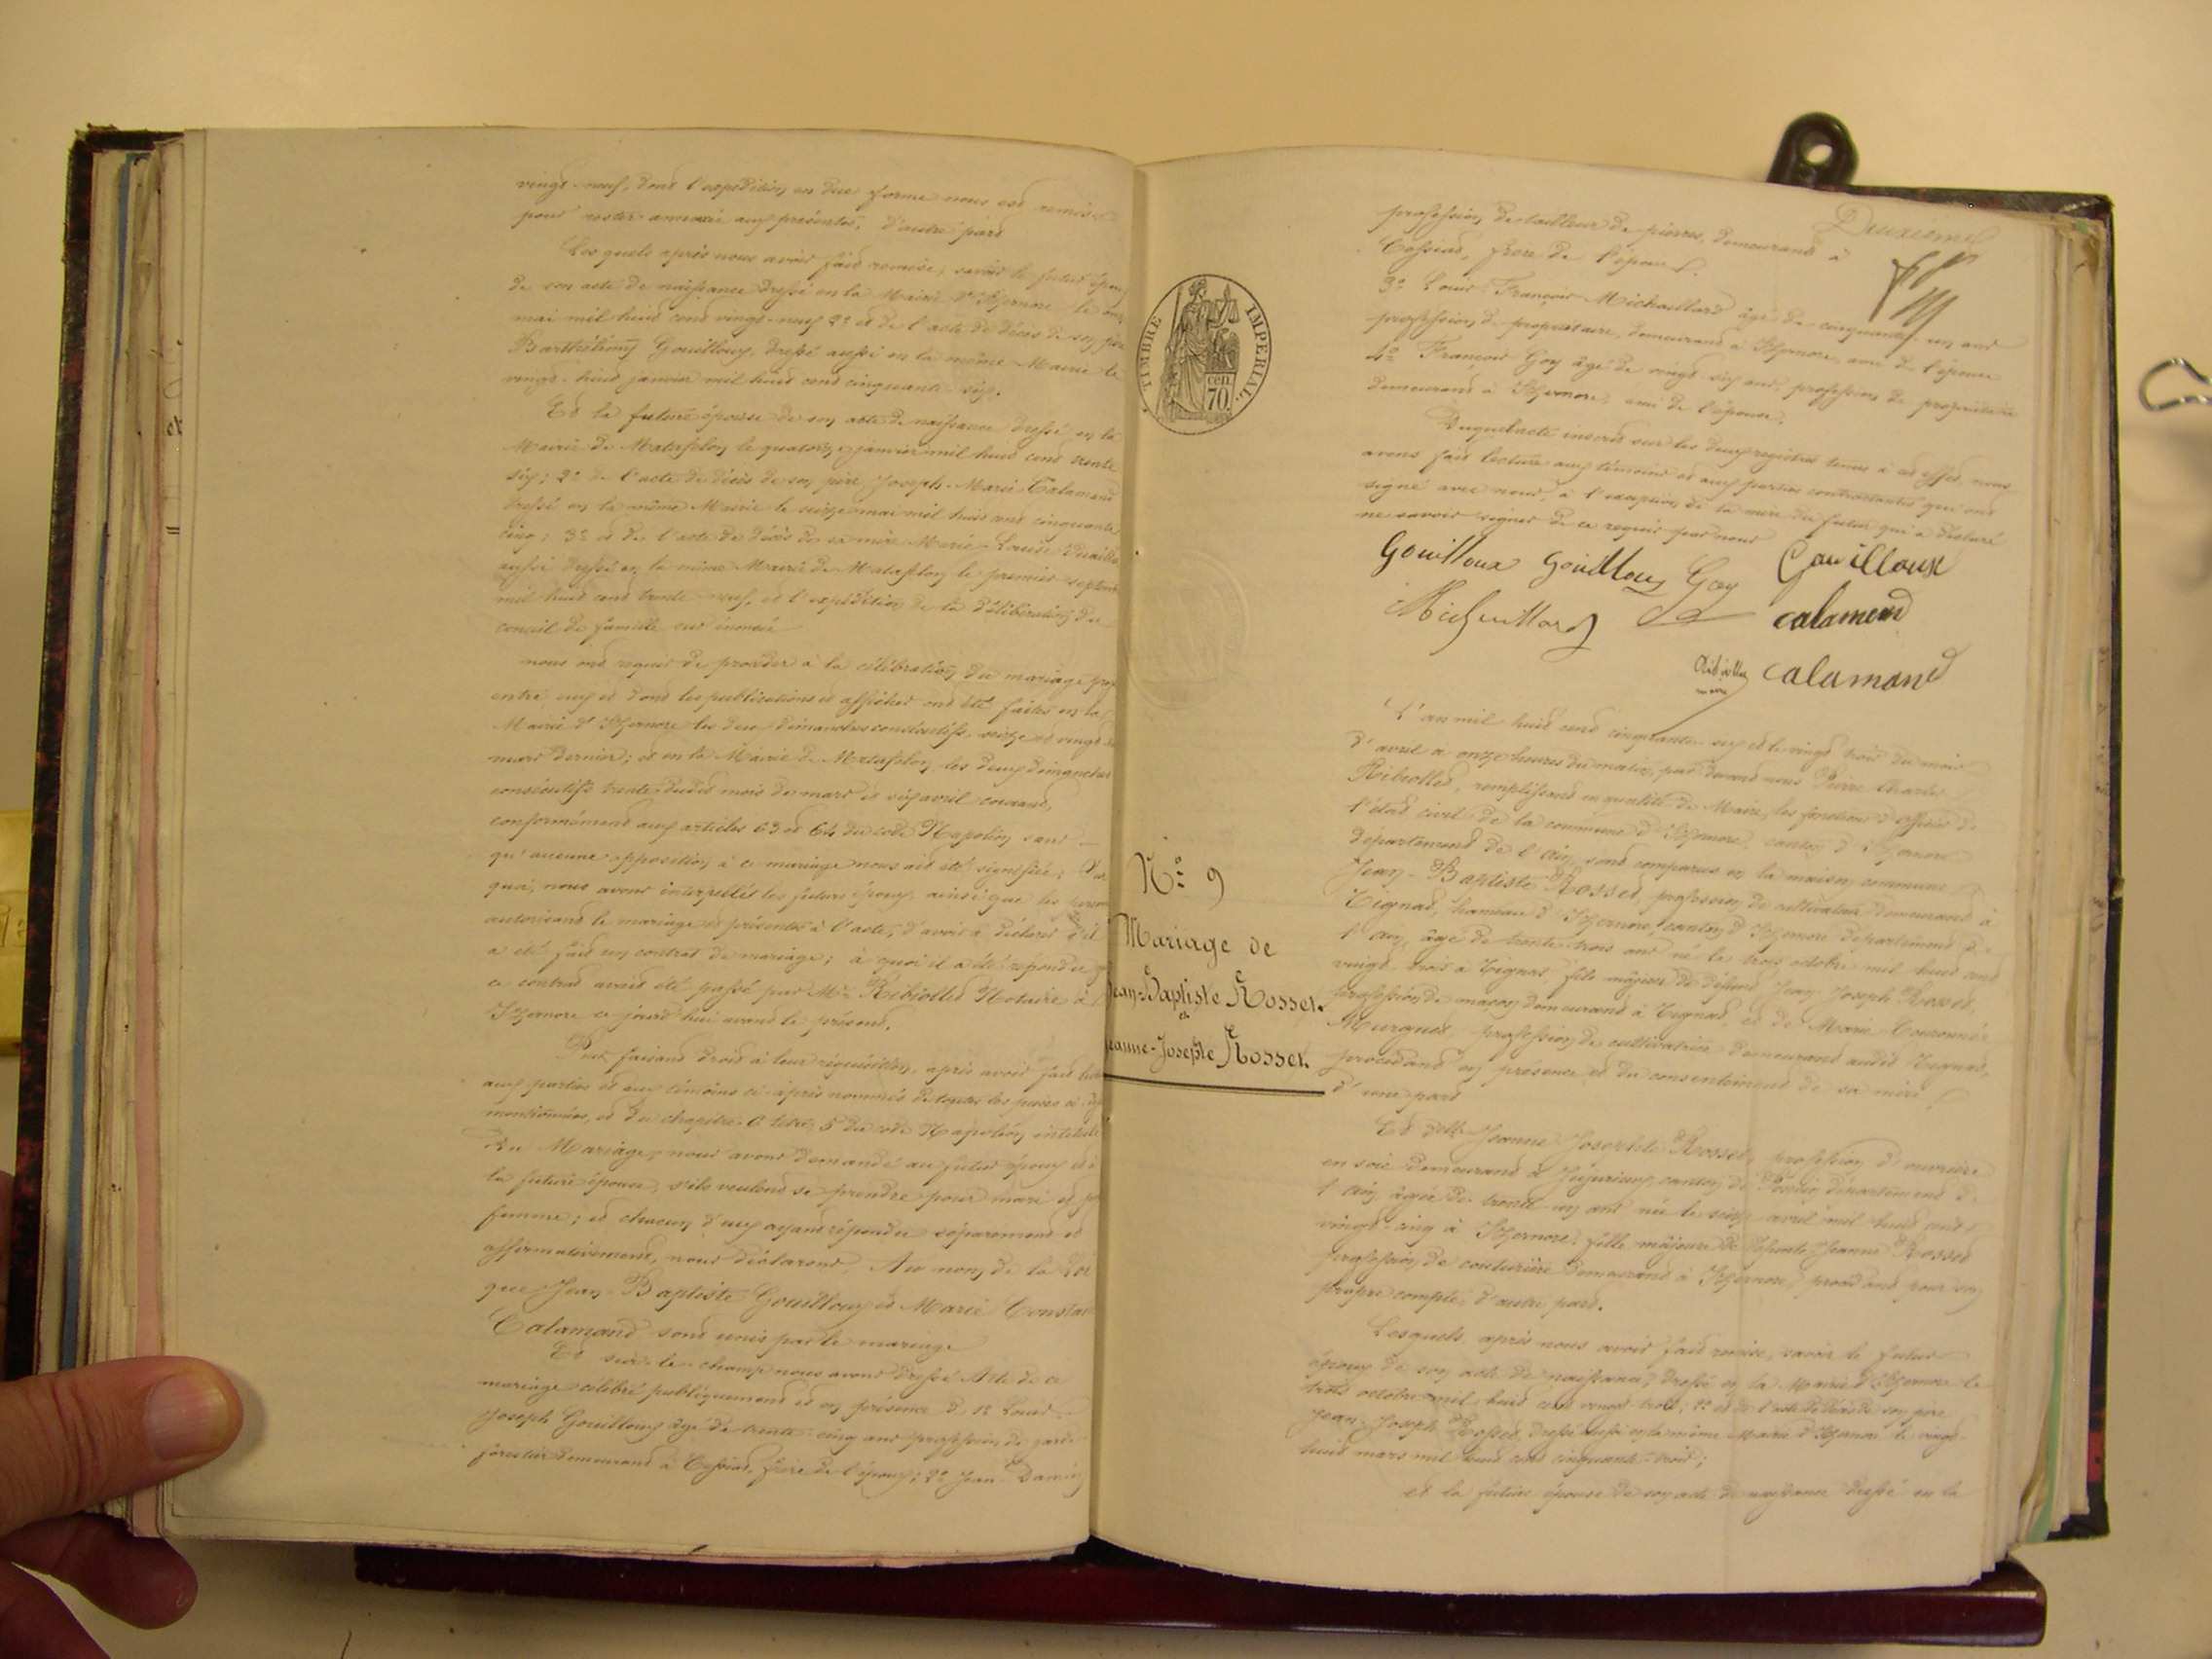 vingt-neuf, dont l'expédition en due forme nous est remise
pour rester annexée aux présentes, d'autre part
Lesquels après nous avoir fait remise, savoir le futur époux
de son acte de naissance dressé en la Mairie d'Izernore le onze
mai mil huit cent vingt-neuf 2º et de l'acte de décès de son père
Barthélemy Gouilloux, dressé aussi en la même Mairie le
vingt-huit janvier mil huit cent cinquante-six.
Et la future épouse de son acte de naissance dressé en la
Mairie de Matafelon le quatorze janvier mil huit cent trente
six; 2º de l'acte de décès de son père Joseph-Marie Calamand
dressé en la même Mairie le seize mai mil huit cent cinquante
cinq; 3º et de l'acte de décès de sa mère Marie-Louise
aussi dressé en la même Mairie de Matafelon le premier septembre
mil huit cent trente-neuf, et l'expédition de la délibération du
conseil de famille sus énoncée
nous ont requis de procéder à la célébration du mariage projeté
entre eux et dont les publications et affiches ont été faites en la
Mairie d'Izernore les deux dimanches consécutifs, seize et vingt
mars dernier; et en la Mairie de Matafelon les deux dimanches
consécutifs trente dudit mois de mars et six avril courant,
conformément aux articles 63 et 64 du code Napoléon sans
qu'aucune opposition à ce mariage nous ait été signifiée;
quoi, nous avons interpellés les futurs époux, ainsi que les personnes
autorisant le mariage et présentes à l'acte, d'avoir à déclarer s'il
a été fait un contrat de mariage; à quoi il a été répondu que
ce contrat avait été passé par Mre Ribiollet Notaire à
Izernore ce jourd'hui avant le présent.
Puis faisant droit à leur réquisition, après avoir fait lecture
aux parties et aux témoins ci-après nommés de toutes les pièces ci-dessus
mentionnées, et du chapitre 6 titre 5 du code Napoléon intitulé
Du Mariage, nous avons demandé au futur époux et à
la future épouse, s'ils veulent se prendre pour mari et pour
femme; et chacun d'eux ayant répondu séparément et
affirmativement, nous déclarons Au nom de la Loi
que Jean-Baptiste Gouilloux et Marie Constance
Calamand sont unis par le mariage
Et sur le champ nous avons dressé Acte de ce
mariage célébré publiquement et en présence d 1º Louis
Joseph Gouilloux âgé de trente-cinq ans profession de garde
forestier demeurant à Cessiat, frère de l'époux; 2º Jean-Damien
Deuxième
profession de tailleur de pierres, demeurant à
Cessiat, frère de l'époux.
3º Louis-François Michaillard âgé de cinquante un ans
profession de propriétaire, demeurant à Izernore, ami de l'épouse
4º François Goy âgé de vingt-six ans, profession de propriétaire
demeurant à Izernore, ami de l'épouse.
Duquel acte inscrit sur les deux registres tenus à cet effet, nous
avons fait lecture aux témoins et aux parties contractantes qui ont
signé avec nous, à l'exception de la mère du futur qui a déclaré
ne savoir signer de ce requis par nous
Gouilloux Gouilloux Goy Gouilloux
Michaillard calamand
calamand
TIMBRE IMPÉRIAL
cen. 70
Nº 9
Mariage de
Jean-Baptiste Rosset
et
Jeanne-Josephte Rosset.
L'an mil huit cent cinquante-six et le vingt trois du mois
d'avril à onze heures du matin, par devant nous Pierre Charles
Ribiollet, remplissant en qualité de Maire, les fonctions d'officier de
l'état civil de la commune d'Izernore, canton d'Izernore
département de l'Ain, sont comparus en la maison commune
Jean-Baptiste Rosset, profession de cultivateur demeurant à
Tignat, hameau d'Izernore, canton d'Izernore département de
l'Ain, âgé de trente-trois ans né le trois octobre mil huit cent
vingt-trois à Tignat, fils majeur de défunt Jean-Joseph Rosset,
profession de maçon demeurant à Tignat, et de Marie
profession de cultivatrice demeurant audit Tignat,
procédant en présence et du consentement de sa mère
d'une part
Et Delle Jeanne Josephte Rosset, profession d'ouvrière
en soie demeurant à Jujurieux canton de Poncin département de
l'Ain, âgée de trente-un ans née le seize avril mil huit cent
vingt-cinq à Izernore, fille majeure de défunte Jeanne Rosset
profession de couturière demeurant à Izernore, procédant pour son
propre compte, d'autre part.
Lesquels, après nous avoir fait remise, savoir le futur
époux de son acte de naissance, dressé en la Mairie d'Izernore le
trois octobre mil huit cent vingt-trois; 2º et de l'acte de décès de son père
Jean-Joseph Rosset, dressé aussi en la même Mairie d'Izernore le vingt-
huit mars mil huit cent cinquante-trois;
et la future épouse de son acte de naissance dressé en la